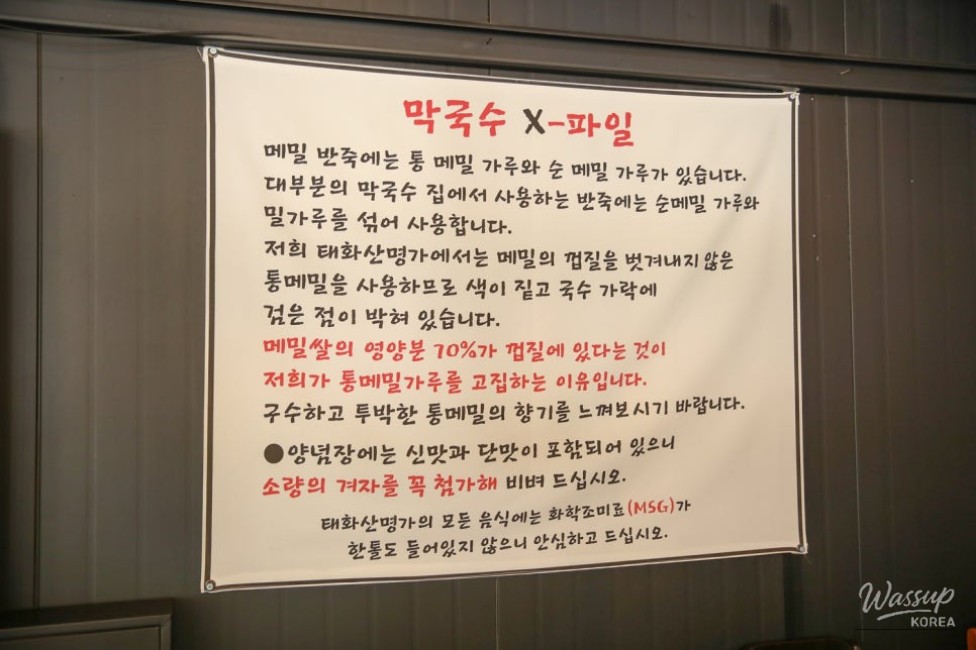 막국수 X-파일
메밀 반죽에는 통 메밀 가루와 순 메밀 가루가 있습니다.
대부분의 막국수 집에서 사용하는 반죽에는 순메밀 가루와
밀가루를 섞어 사용합니다.
저희 태화산명가에서는 메밀의 껍질을 벗겨내지 않은
통메밀을 사용하므로 색이 짙고 국수 가락에
검은 점이 박혀 있습니다.
메밀쌀의 영양분 70%가 껍질에 있다는 것이
저희가 통메밀가루를 고집하는 이유입니다.
구수하고 투박한 통메밀의 향기를 느껴보시기 바랍니다.
●양념장에는 신맛과 단맛이 포함되어 있으니
소량의 겨자를 꼭 첨가해 비벼 드십시오.
태화산명가의 모든 음식에는 화학조미료(MSG)가
한톨도 들어있지 않으니 안심하고 드십시오.
Wassup
KOREA